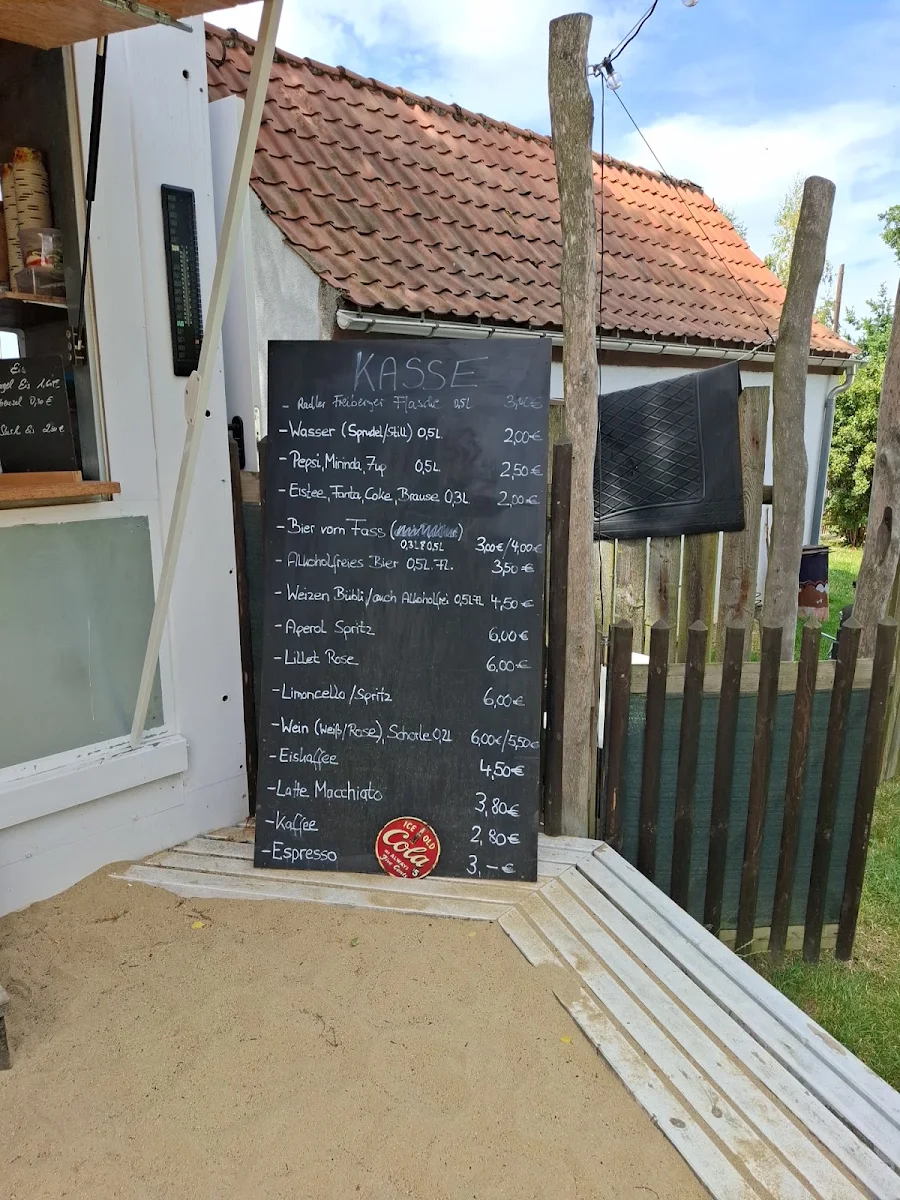 KASSE
- Radler Freiberger Flasche 0,5L 3,00€
- Wasser (Sprudel/Still) 0,5L 2,00€
- Pepsi, Mirinda, 7up 0,5L 2,50€
- Eistee, Fanta, Coke, Brause 0,3L 2,00€
- Bier vom Fass
0,3L & 0,5L 3,00€/4,00€
- Alkoholfreies Bier 0,5L Fl. 3,50€
- Weizen Bübli/auch Alkoholfrei 0,5L FL 4,50€
- Aperol Spritz 6,00€
- Lillet Rose 6,00€
- Limoncello/Spritz 6,00€
- Wein (Weiß/Rose), Schorle 0,2L 6,00€/5,50€
- Eiskaffee 4,50€
- Latte Macchiato 3,80€
- Kaffee 2,80€
- Espresso 3,-€
ICE COLD
Cola
ALWAYS
5
Eis